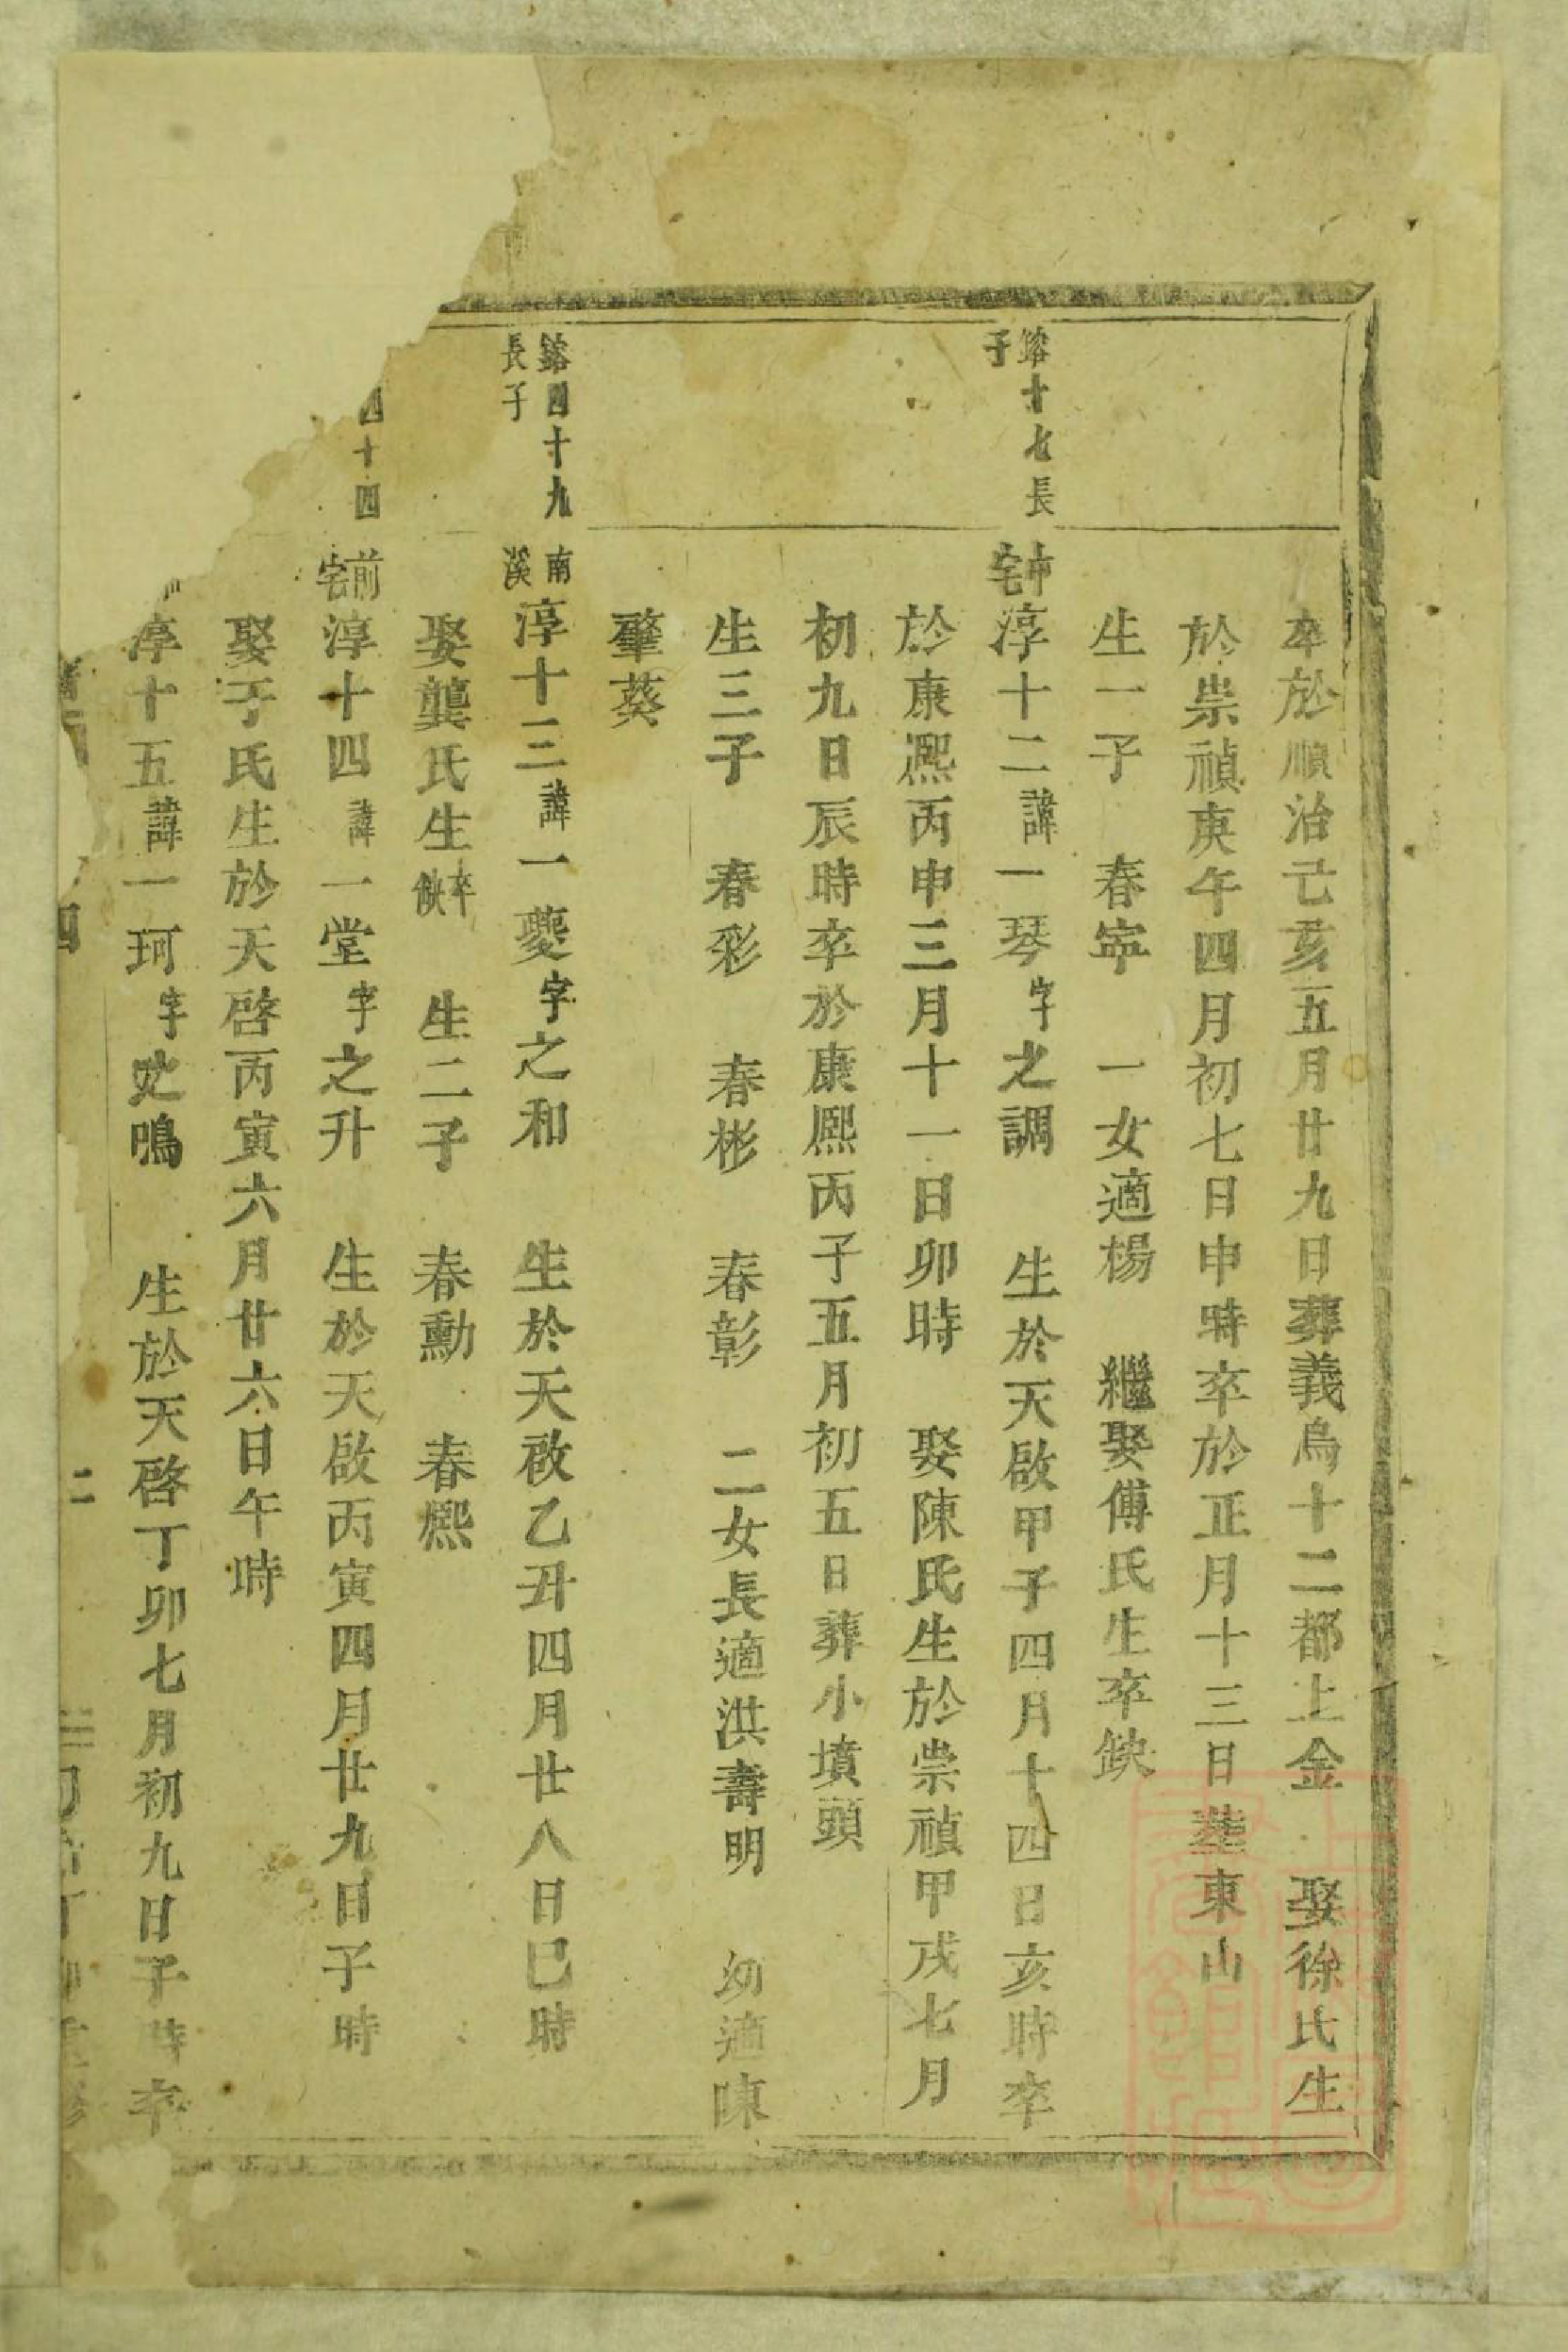 卒於順治己亥五月廿九日葬義烏十二都上金 娶徐氏生
於崇禎庚午四月初七日申時卒於正月十三日葬東山
生一子 春寧 一女適楊 繼娶傅氏生卒缺
鎔十七長子
中宅淳十二諱一琴字之調 生於天啟甲子四月十四日亥時卒
於康熙丙申三月十一日卯時 娶陳氏生於崇禎甲戌七月
初九日辰時卒於康熙丙子五月初五日葬小墳頭
生三子 春彩 春彬 春彰 二女長適洪壽明 幼適陳
肇葵
鎔四十九長子
南溪淳十三諱一夔字之和 生於天啟乙丑四月廿八日巳時
娶龔氏生卒缺 生二子 春勳 春熙
四十四
前宅淳十四諱一堂字之升 生於天啟丙寅四月廿九日子時
娶于氏生於天啓丙寅六月廿六日午時
淳十五諱一珂字 鳴 生於天啓丁卯七月初九日子時卒